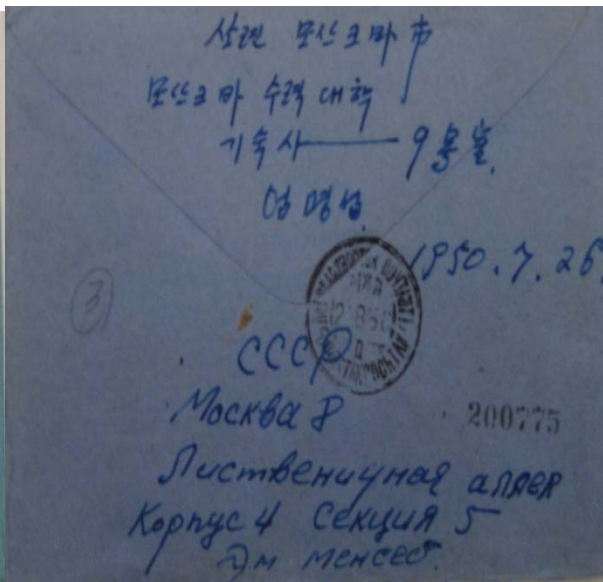 쏘련 모쓰크바 市
모쓰크바 수력 대학
기숙사 — 9号室.
엄명섭
1950. 7. 26.
3
СССР
Москва 8
200775
Лиственичная аллея
Корпус 4 Секция 5
Эм менсеб.